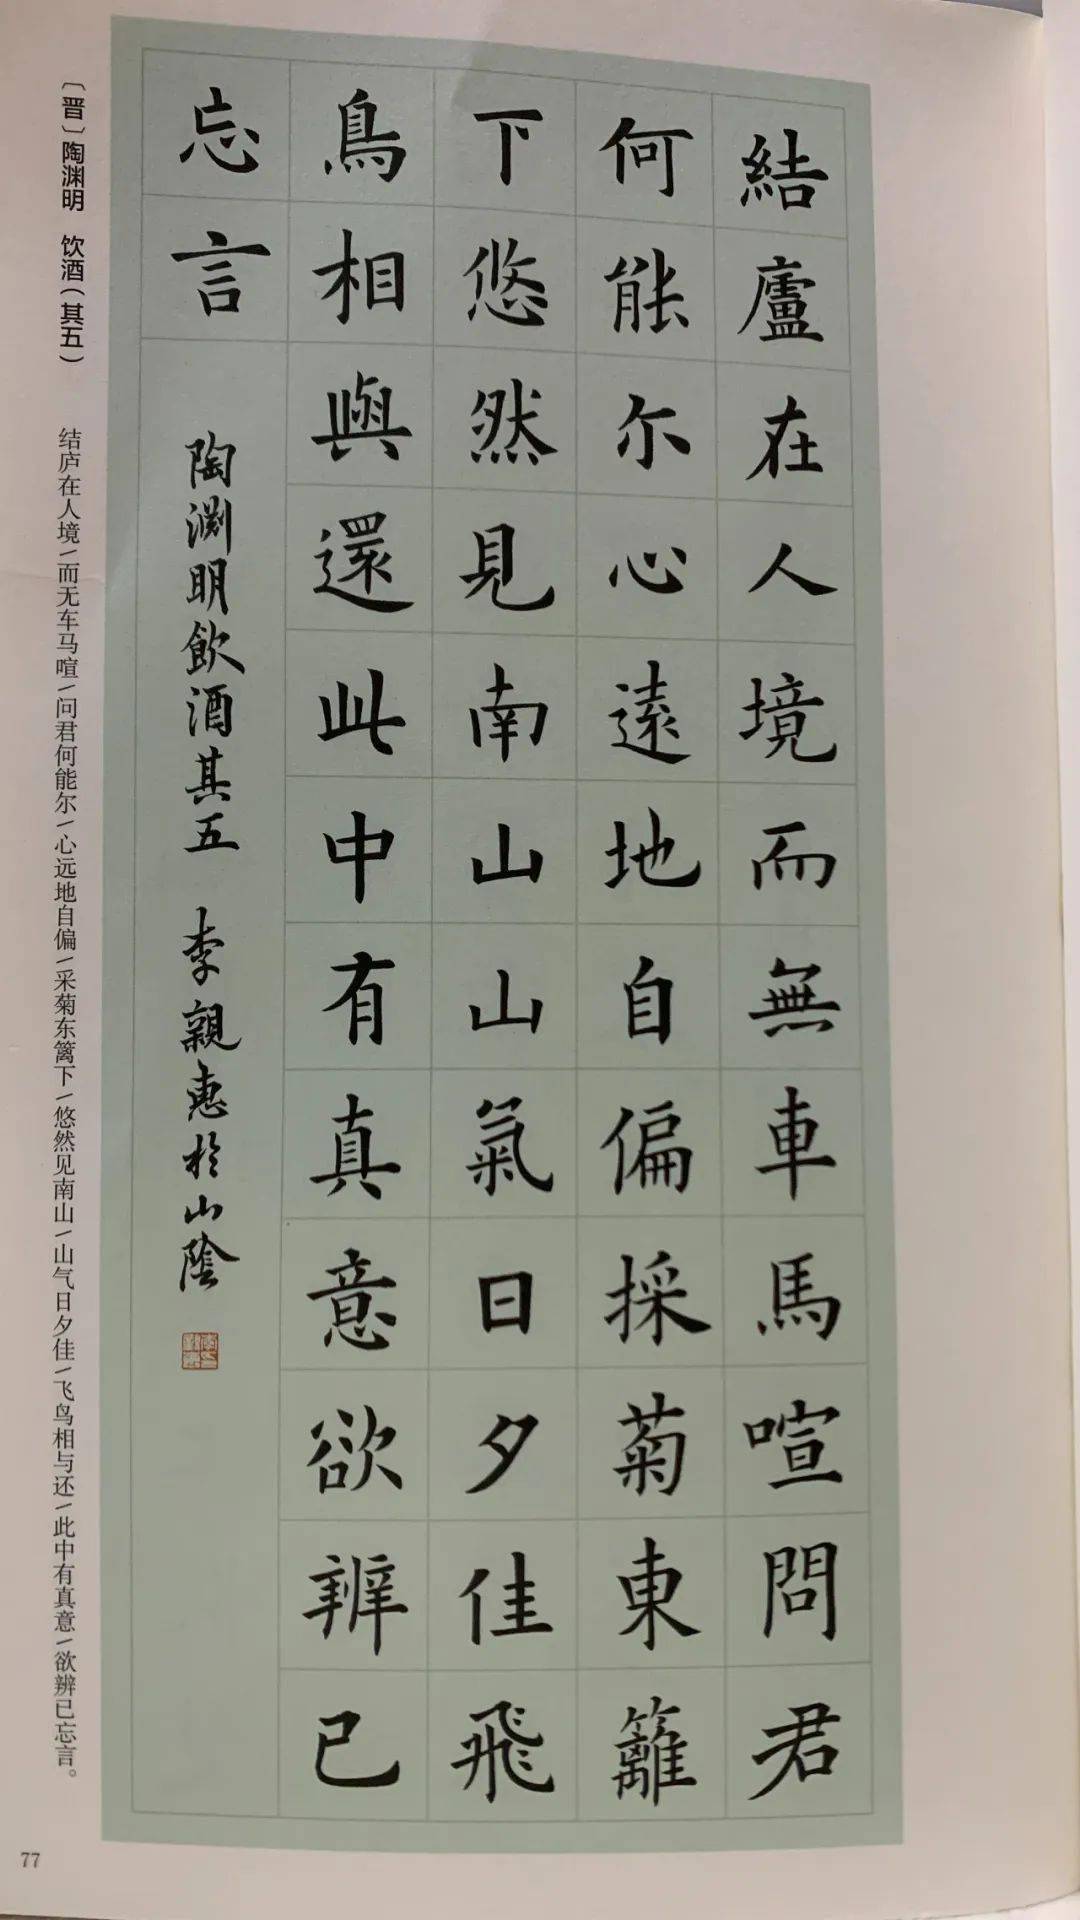 結廬在人境而無車馬喧問君
何能尔心遠地自偏採菊東籬
下悠然見南山山氣日夕佳飛
鳥相與還此中有真意欲辨已
忘言
陶渊明飲酒其五 李親惠於山陰
〔晋〕陶渊明 饮酒（其五） 结庐在人境/而无车马喧/问君何能尔/心远地自偏/采菊东篱下/悠然见南山/山气日夕佳/飞鸟相与还/此中有真意/欲辨已忘言。
77